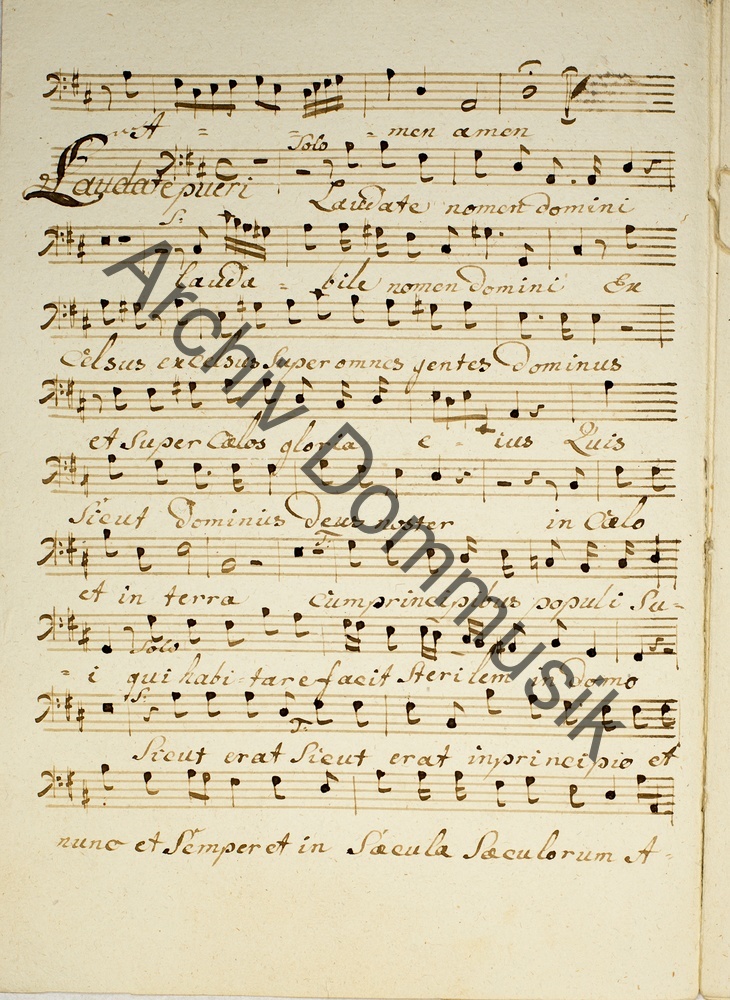 A - - - men amen
Solo
Laudate pueri Laudate nomen domini
S:
Lauda - bile nomen domini Ex
Celsus excelsus Super omnes gentes dominus
et Super Cælos gloria e - ius Quis
Sicut dominus deus noster in Cælo
T:
et in terra cum principibus populi Su -
Solo
- i qui habitare facit Sterilem in domo
S: T:
Sicut erat Sicut erat in principio et
nunc et Semper et in Sæcula Sæculorum A -
Archiv Dommusik